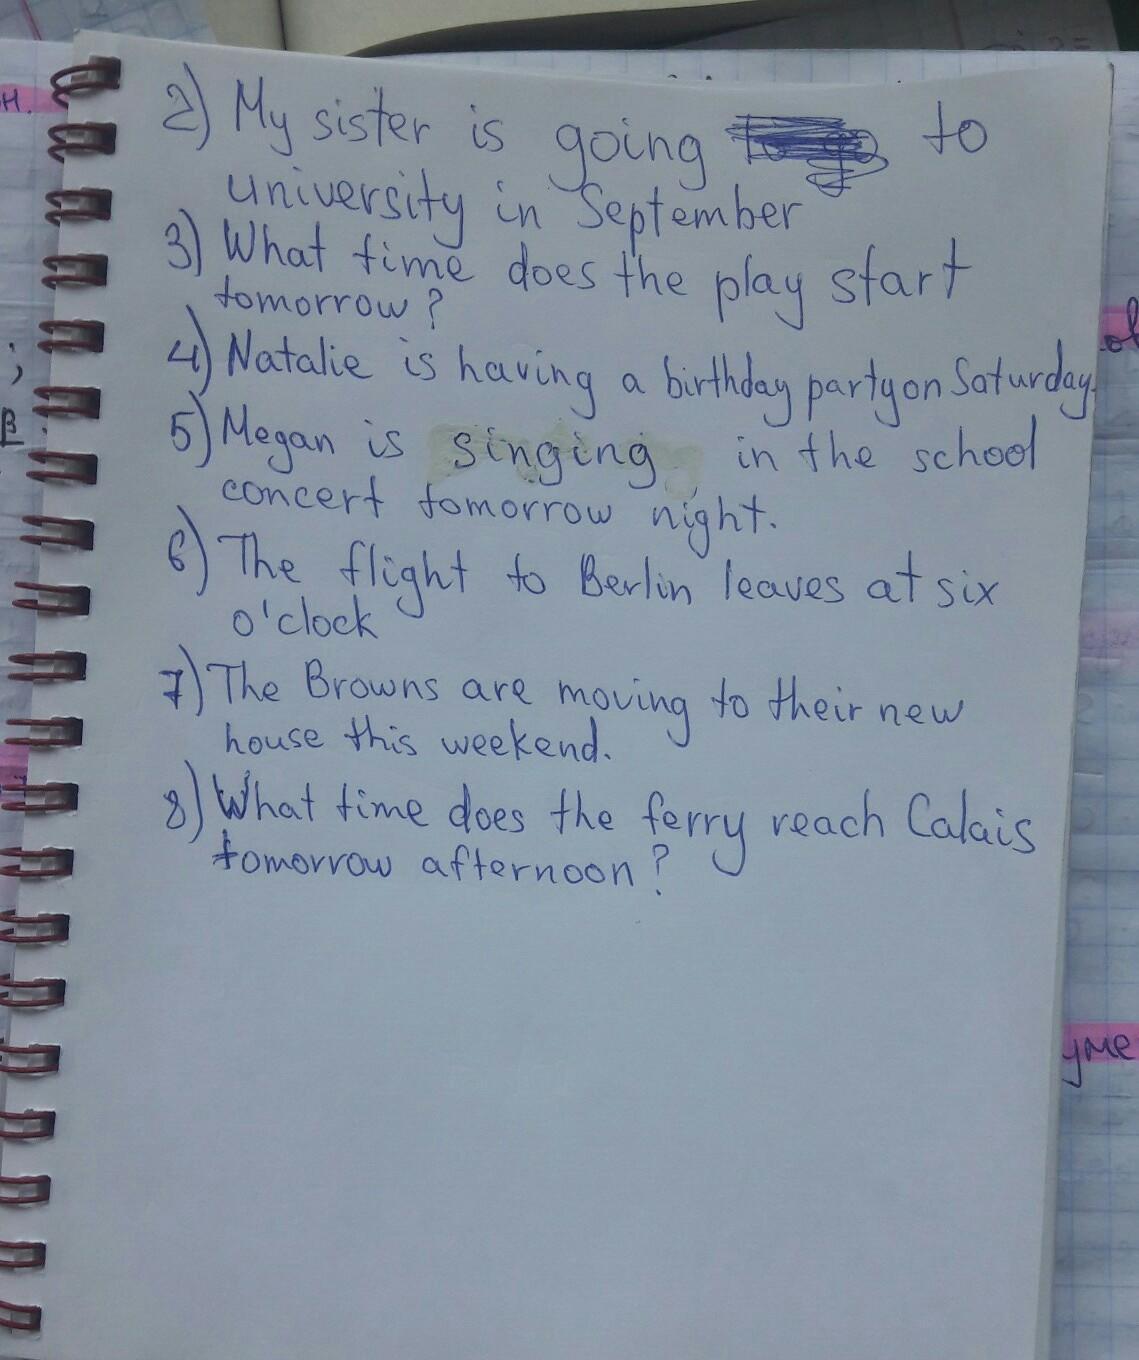 2) My sister is going to
university in September
3) What time does the play start
tomorrow?
4) Natalie is having a birthday party on Saturday.
5) Megan is singing in the school
concert tomorrow night.
6) The flight to Berlin leaves at six
o'clock
7) The Browns are moving to their new
house this weekend.
8) What time does the ferry reach Calais
tomorrow afternoon?